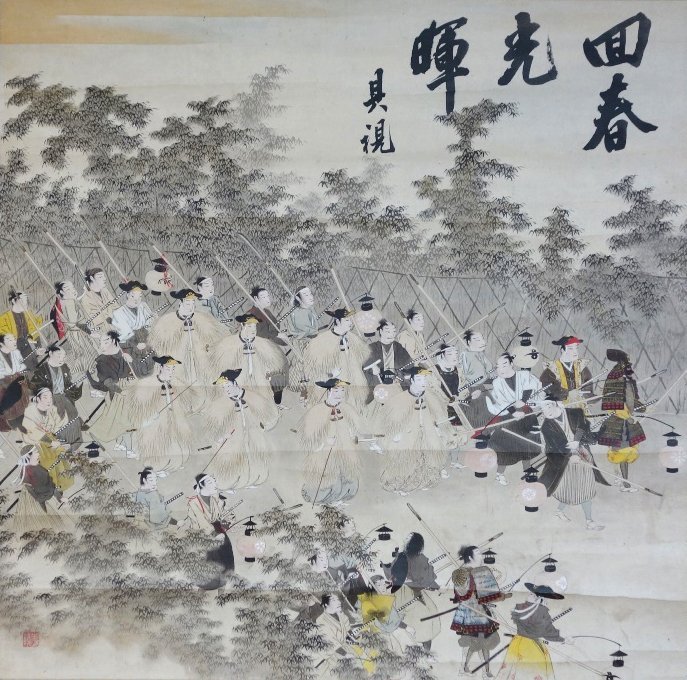 回春
光
暉
具視